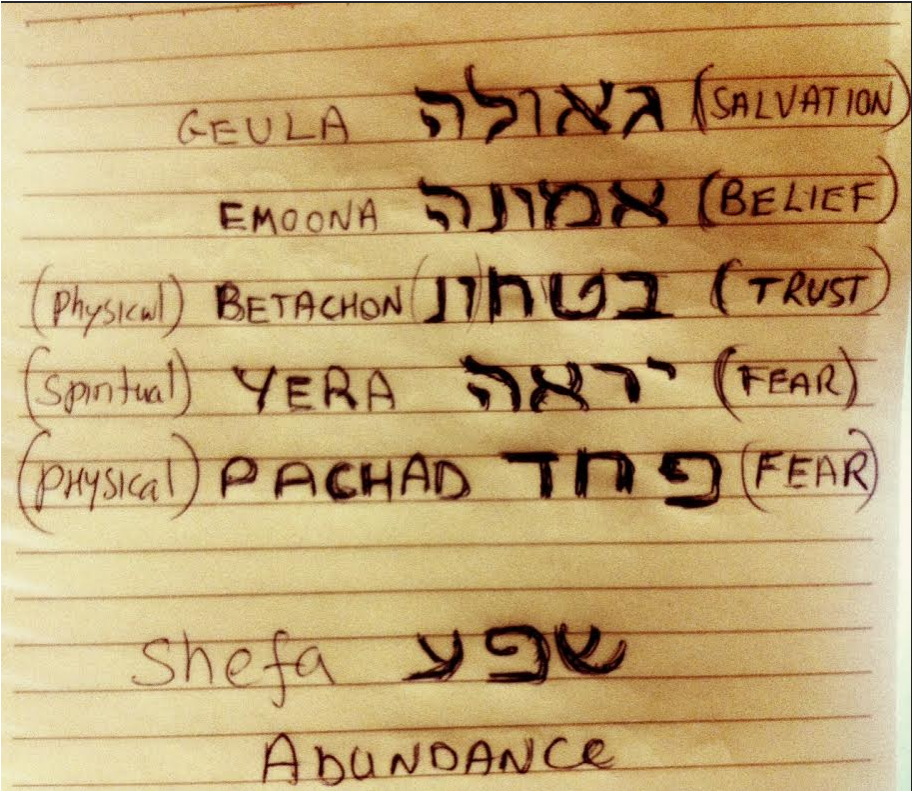 GEULA גאולה (SALVATION)
EMOONA אמונה (BELIEF)
(Physical) BETACHON בטח(ונ) (TRUST)
(Spiritual) YERA יראה (FEAR)
(PHYSICAL) PACHAD פחד (FEAR)
Shefa שפע
ABUNDANCE